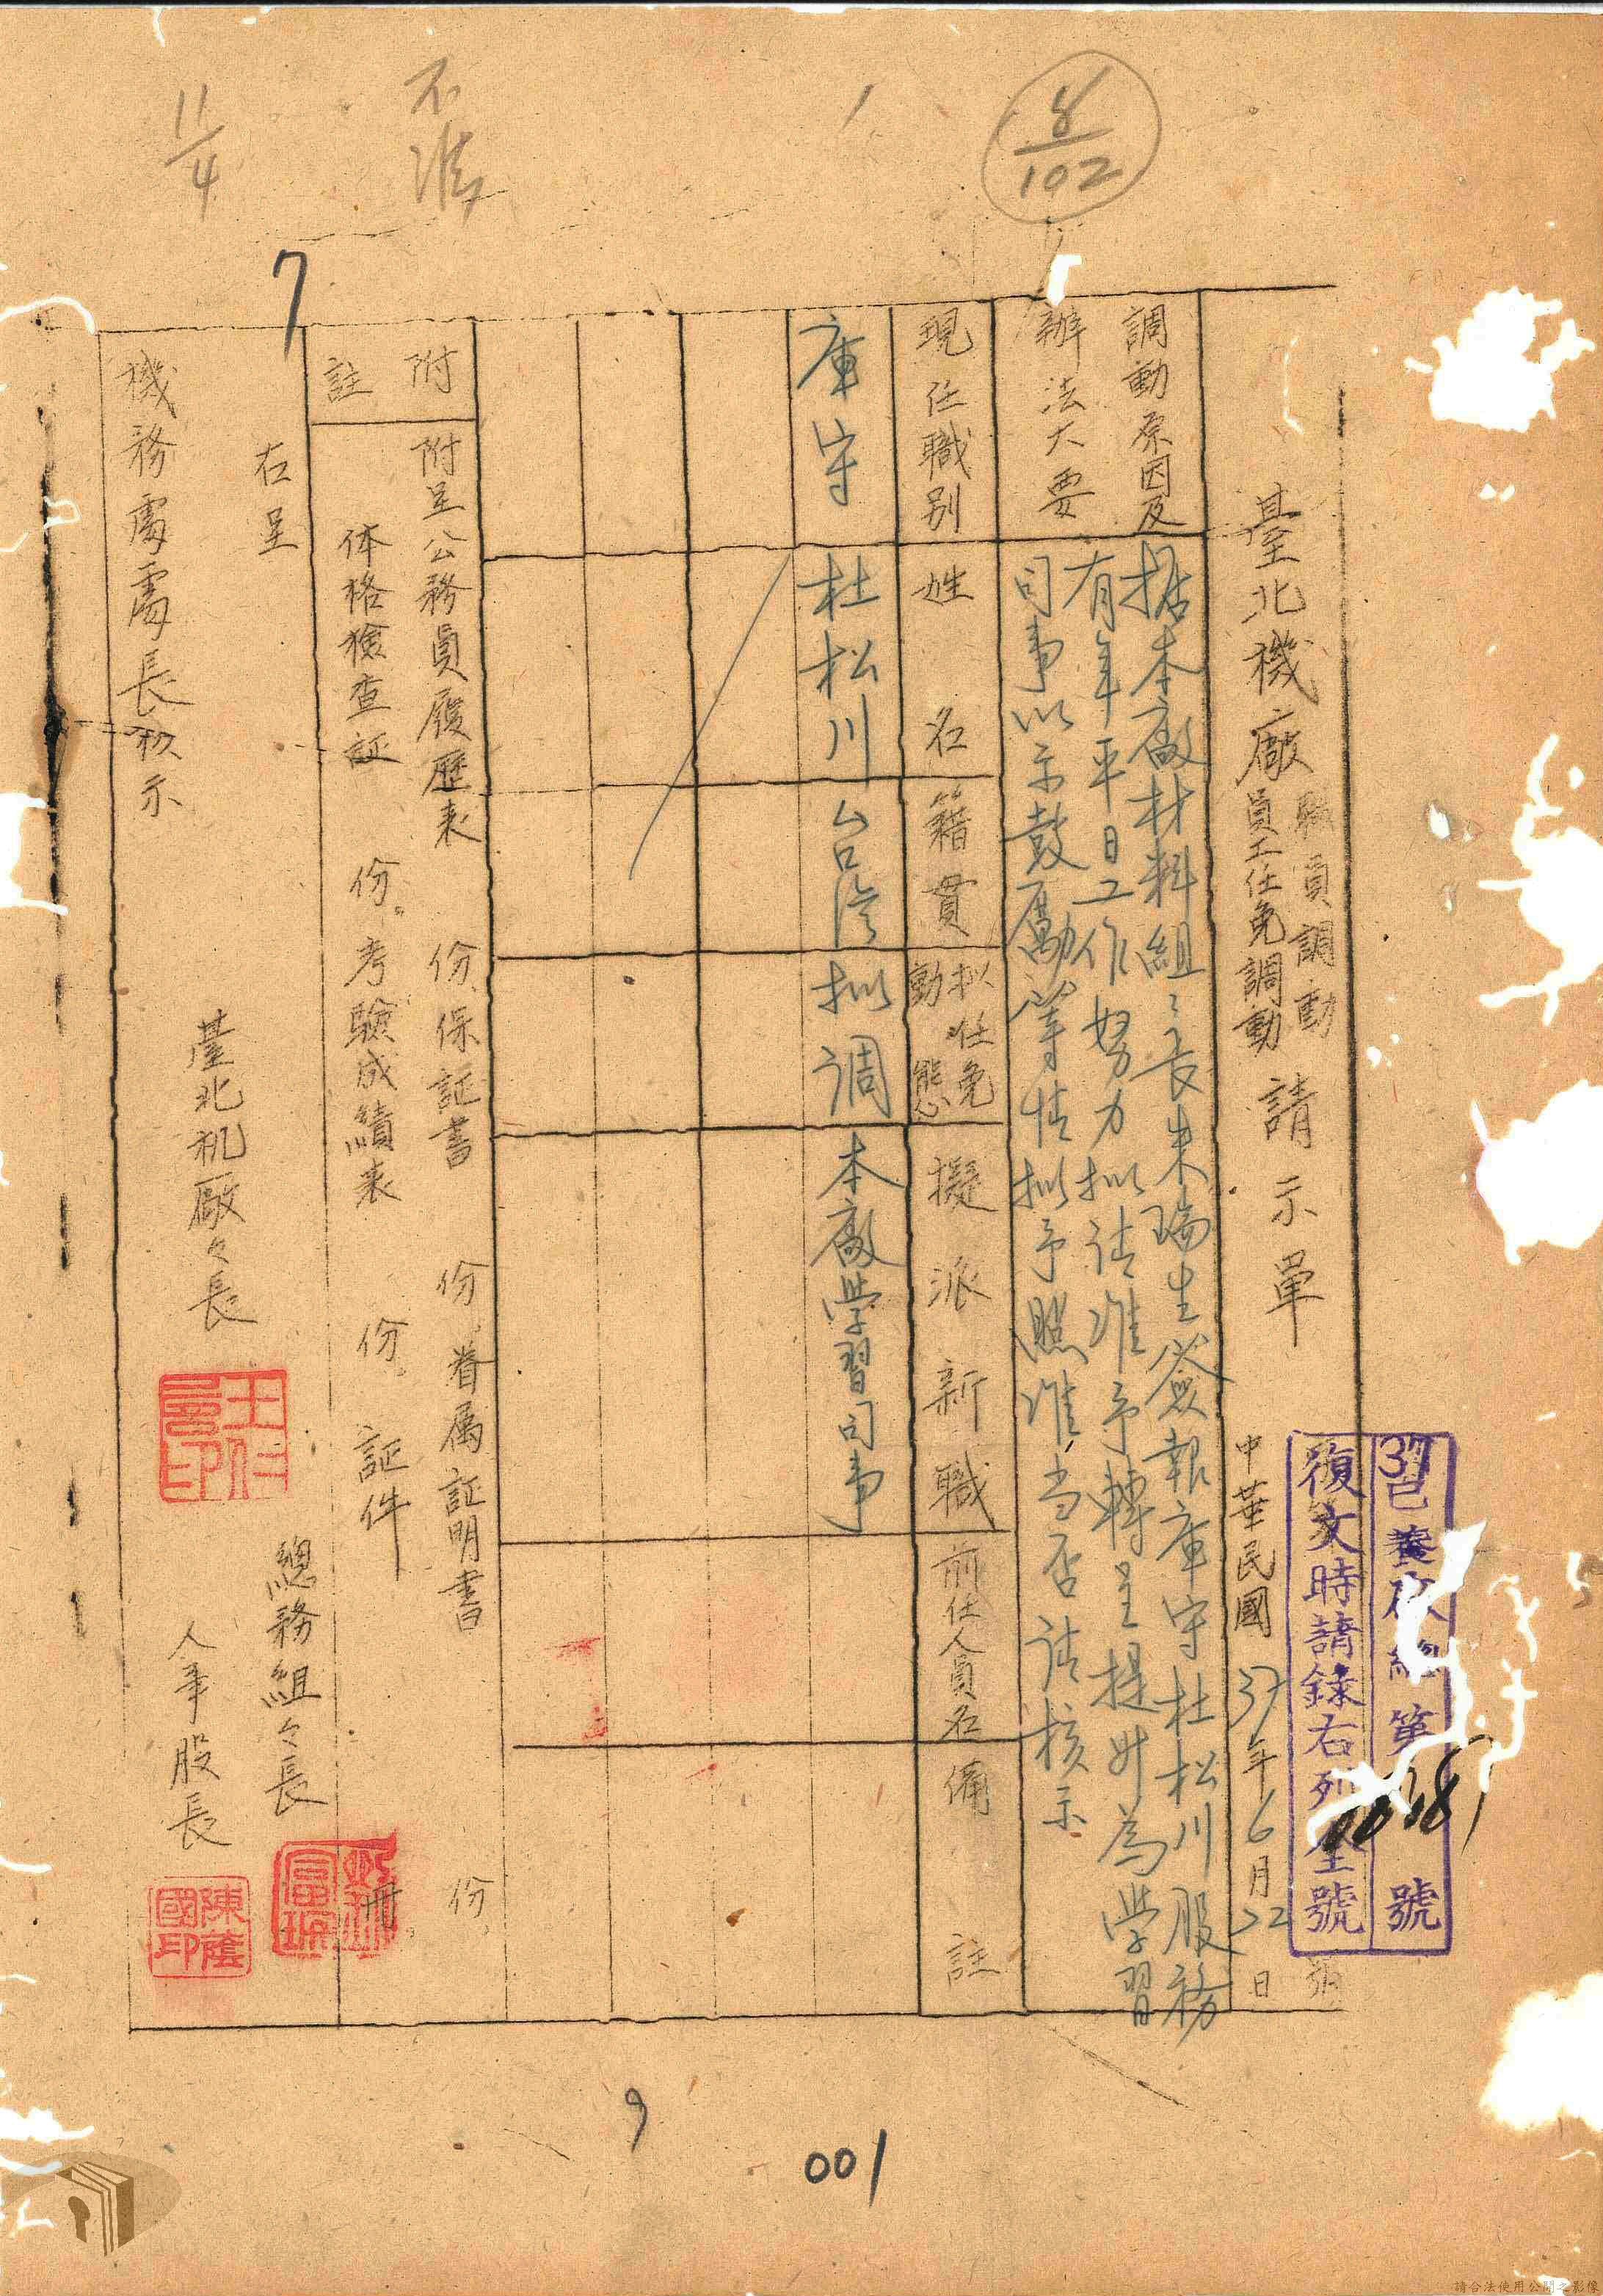 8/102
不准
11/4
7
37已養廠總第 號
復文時請錄右列 號
臺北機廠
職員調動
員工任免調動
請示單
中華民國37年6月22日
調動原因及
辦法大要
据本廠材料組々長朱瑞生簽報庫守杜松川服務
有年平日工作努力拟请准予轉呈提升為學習
司事以示鼓勵等情拟予照准,当否请核示
現任職别
姓名
籍貫
拟任免
動態
擬派新職
前任人員名
備註
庫守
杜松川
台湾
拟调
本廠學習司事
附註
附呈公務員履歷表 份、保証書 份、眷属証明書 份、
体格檢查証 份。考驗成績表 份。証件 冊。
右呈
機務處處長核示
臺北机廠々長
總務組々長
人事股長
陳蔭國印
9
001
請合法使用公開之影像